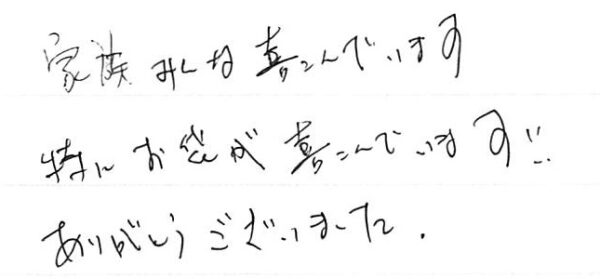 家族みんな喜こんでいます
特にお袋が喜こんでいます!!
ありがとうございました.